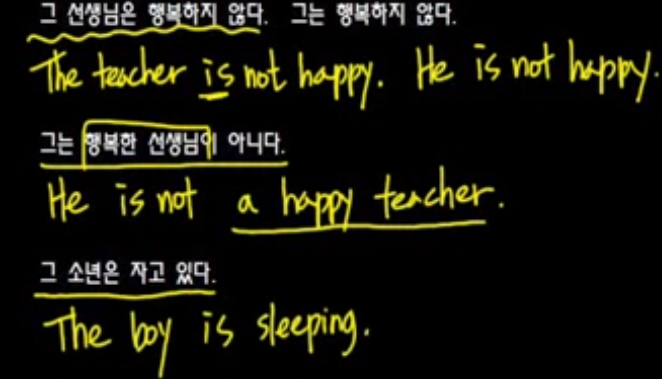 그 선생님은 행복하지 않다. 그는 행복하지 않다.
The teacher is not happy. He is not happy.
그는 행복한 선생님이 아니다.
He is not a happy teacher.
그 소년은 자고 있다.
The boy is sleeping.